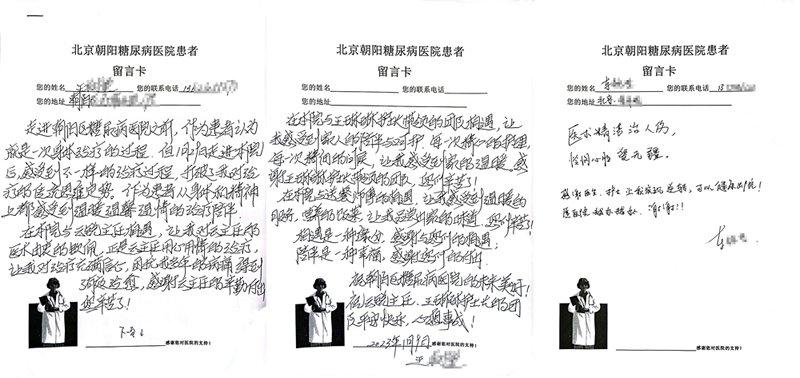 北京朝阳糖尿病医院患者
留言卡
您的姓名 您的联系电话
您的地址
走进朝阳区糖尿病医院之前，作为患者认为
就是一次身体治疗的过程，但1月1日走进本院
后，感受到不一样的治疗过程，打破了我对治
疗的医疗思维定势，作为患者从身体和精神
上都感受到温暖 温情的治疗陪伴。
在本院与云晓主任相遇，让我对云主任的
医术由衷的 ，正是云主任用心用情的治疗，
让我对治疗充满信心，困扰我多年的病痛得到
治愈，感谢云主任的辛勤付出
您辛苦了！
感谢您对医院的支持！
北京朝阳糖尿病医院患者
留言卡
您的姓名 您的联系电话
您的地址
在本院与王琳琳护士长带领的团队相遇，让
我感受到家人的陪伴与呵护，每一次精心的护理，
每一次 的问候，让我感受到家的温暖，感
谢王琳琳护士长带领的团队，您们辛苦了！
在本院与送餐师傅的相遇，让我感受到温暖的
服务， 的饭菜，让我 家的味道，您们辛苦了！
相遇是一种缘分，感谢与您们的相遇，
陪伴是一种幸福，感谢您们的付出
祝朝阳区糖尿病医院的未来美好！
祝云晓主任、王琳琳护士长的团
队平安快乐，心想事成！
2023年1月9日
感谢您对医院的支持！
北京朝阳糖尿病医院患者
留言卡
您的姓名 您的联系电话
您的地址
医术精湛治人伤，
感谢医生、护士 ，可以健康出院！
医院 越来越好，谢谢！！
感谢您对医院的支持！